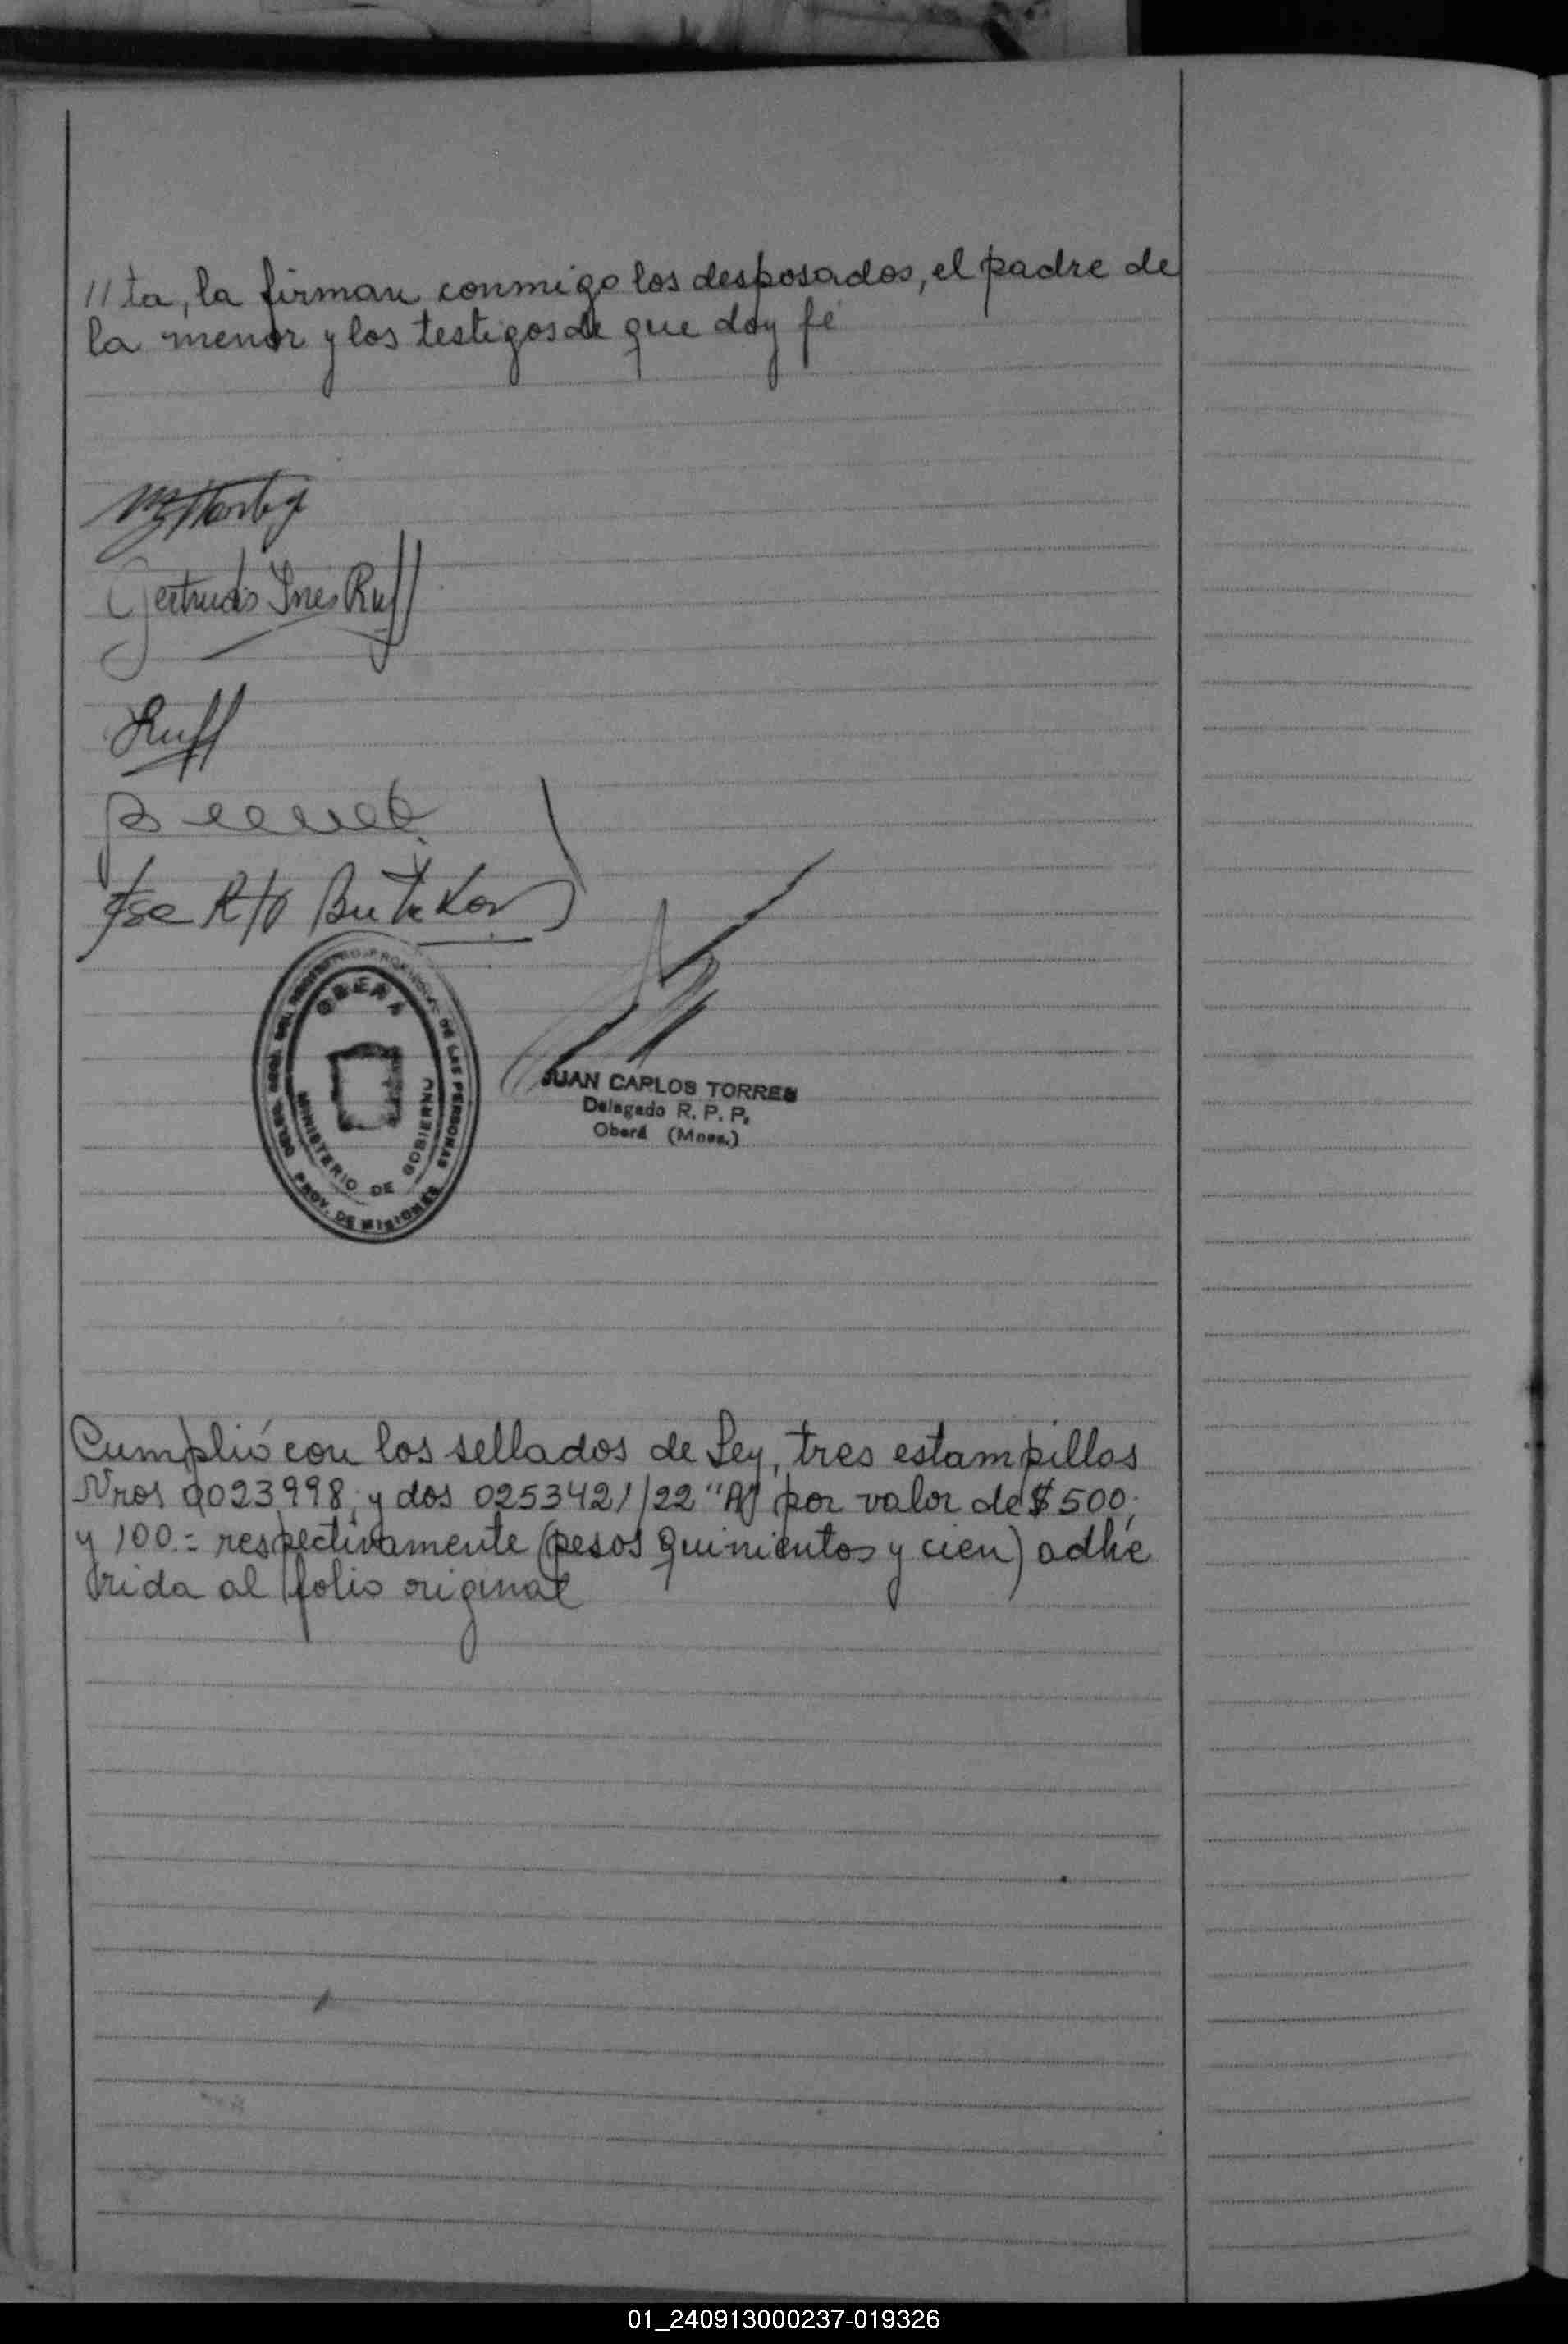 // ta, la firman conmigo los desposados, el padre de
la menor y los testigos de que doy fé
Gertrudis Ines Ruff
Ruff
OBERÁ
DE LAS PERSONAS
MINISTERIO DE GOBIERNO
PROV. DE MISIONES
JUAN CARLOS TORRES
Delegado R. P. P.
Oberá (Mnes.)
Cumplió con los sellados de Ley, tres estampillas
Nros 0023998, y dos 0253421/22 "A" por valor de $ 500.
y 100.= respectivamente (pesos quinientos y cien) adhe
rida al folio original
01_240913000237-019326